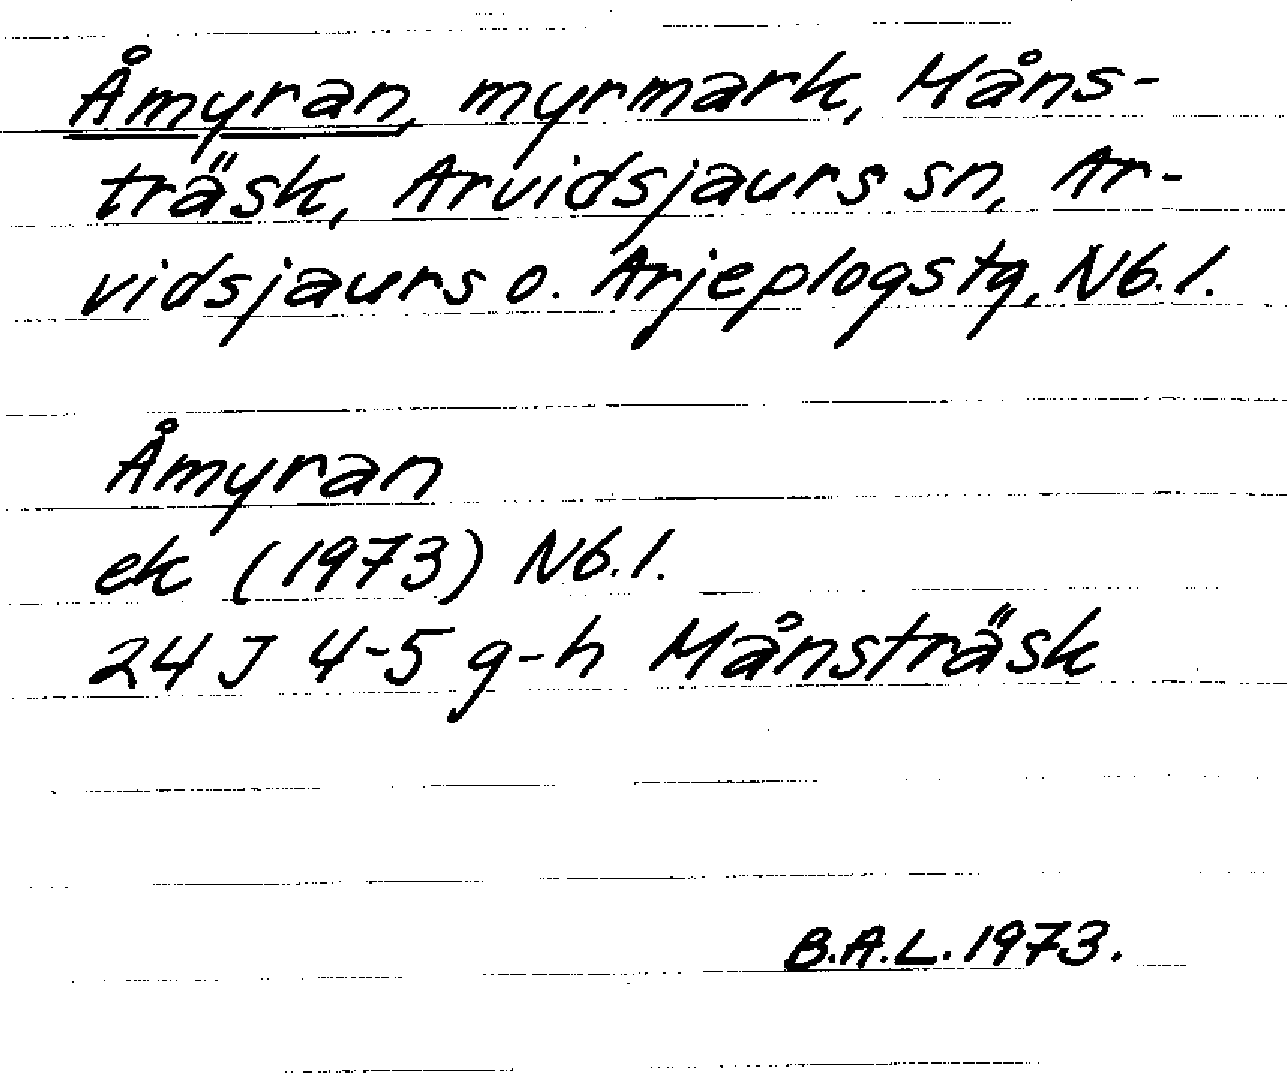 Åmyran, myrmark, Måns-
träsk, Arvidsjaurs sn, Ar-
vidsjaurs o. Arjeplogs tg, Nb. l.
Åmyran
ek (1973) Nb. l.
24 J 4-5 g-h Månsträsk
B.A.L. 1973.